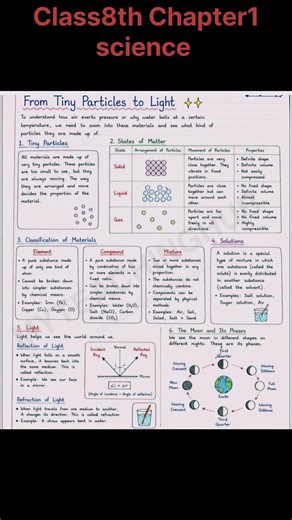 Class8th Chapter1
science
From Tiny Particles to Light
To understand how air exerts pressure or why water boils at a certain
temperature, we need to zoom into these materials and see what kind of
particles they are made up of.
1. Tiny Particles
All materials are made up of
very tiny particles. These particles
are too small to see, but they
are always moving. The way
they are arranged and move
decides the properties of the
material.
2. States of Matter
State Arrangement of Particles Movement of Particles Properties
Solid
Particles are very
close together. They
vibrate in fixed
positions.
• Definite shape
• Definite volume
• Not easily
compressed
Liquid
Particles are close
together but can
move around each
other.
• No fixed shape
• Definite volume
• Almost
incompressible
Gas
Particles are far
apart and move
freely in all
directions.
• No fixed shape
• No fixed volume
• Highly
compressible
3. Classification of Materials
Element
• A pure substance made
up of only one kind of
atom.
• Cannot be broken down
into simpler substances
by chemical means.
• Examples: Iron (Fe),
Copper (Cu), Oxygen (O)
Compound
• A pure substance made
by combination of two
or more elements in a
fixed ratio.
• Can be broken down into
simpler substances by
chemical means.
• Examples: Water (H₂O),
Salt (NaCl), Carbon
dioxide (CO₂)
Mixture
• Two or more substances
mixed together in any
proportion.
• The substances do not
chemically combine.
• Components can be
separated by physical
methods.
• Examples: Air, Soil,
Salad, Salt + Sand
4. Solutions
A solution is a special
type of mixture in which
one substance (called the
solute) is evenly distributed
in another substance
(called the solvent).
• Examples: Salt solution,
Sugar solution, Air
5. Light
Light helps us see the world around us.
Reflection of Light
• When light falls on a smooth
surface, it bounces back into
the same medium. This is
called reflection.
• Example: We see our face
in a mirror.
Incident
Ray
Normal
Reflected
Ray
Mirror
∠i = ∠r
(Angle of incidence = Angle of reflection)
Refraction of Light
• When light travels from one medium to another,
it changes its direction. This is called refraction.
• Example: A straw appears bent in water.
6. The Moon and Its Phases
We see the moon in different shapes on
different nights. These are its phases.
First
Quarter
Waxing
Crescent
Waxing
Gibbous
New
Moon
Earth
Full
Moon
Waning
Crescent
Waning
Gibbous
Third
Quarter